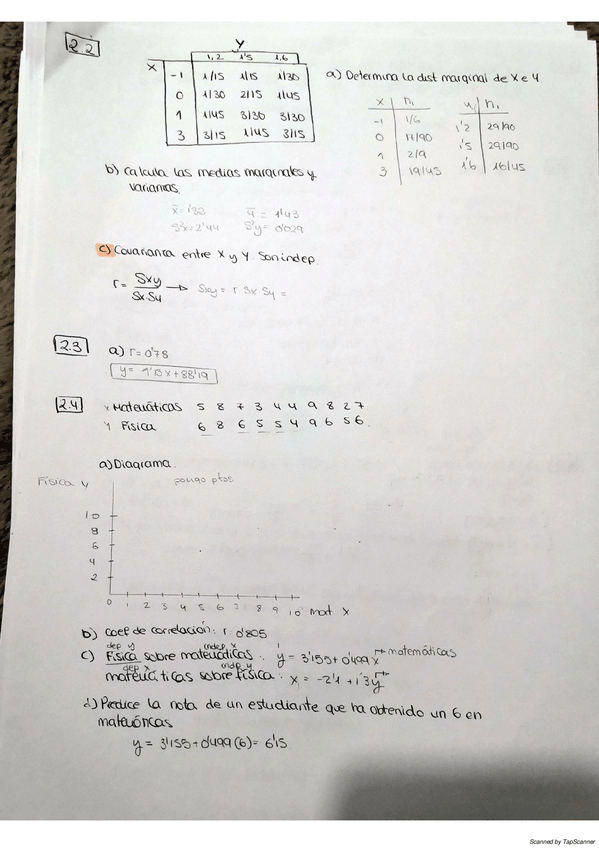 2.2
Y
1,2 1'5 1,6
X
-1 1/15 1/15 1/30
0 1/30 2/15 1/45
1 1/45 3/30 3/30
3 3/15 1/45 3/15
a) Determina la dist marginal de X e Y
x n.
-1 1/6
0 17/90
1 2/9
3 19/45
y n.
1'2 29/90
1'5 29/90
1'6 16/45
b) Calcula las medias marginales y
varianzas.
x̄=1'33 ȳ = 1'43
S²x=2'44 S²y= 0'029
c) Covarianza entre X y Y. Son indep.
r= Sxy / Sx.Sy → Sxy = r Sx Sy =
2.3 a) r= 0'78
y= 1'13x+88'19
2.4 x Matemáticas 5 8 7 3 4 4 9 8 2 7
Y Física 6 8 6 5 5 4 9 6 5 6.
a) Diagrama.
Física y pongo ptos
10
8
6
4
2
0 1 2 3 4 5 6 7 8 9 10 mat x
b) coef de correlación: r: 0'805
dep y indep x
c) Física sobre matemáticas: y = 3'155+0'499x → matemáticas
dep x indp y
matemáticas sobre física: x = -2'1 + 1'3y
d) Predice la nota de un estudiante que ha obtenido un 6 en
matemáticas
y = 3'155+0'499(6)= 6'15
Scanned by TapScanner